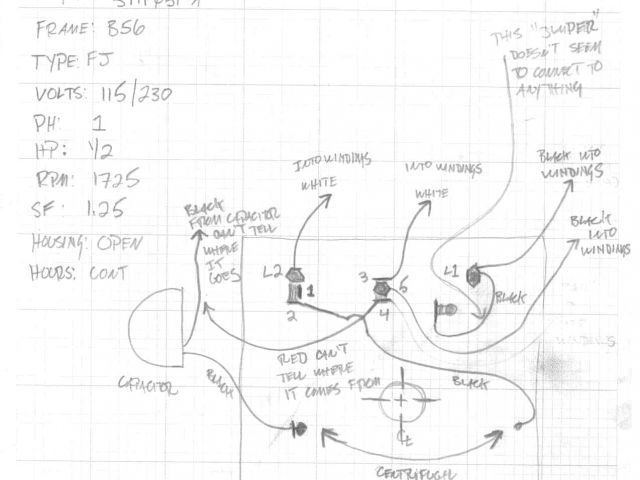 FRAME: B56
TYPE: FJ
VOLTS: 115/230
PH: 1
HP: 1/2
RPM: 1725
SF: 1.25
HOUSING: OPEN
HOURS: CONT
THIS "JUMPER"
DOESN'T SEEM
TO CONNECT TO
ANYTHING
INTO WINDINGS
WHITE
INTO WINDINGS
WHITE
BLACK INTO
WINDINGS
BLACK
INTO
WINDINGS
BLACK
FROM CAPACITOR
CAN'T TELL
WHERE
IT
GOES
L2
1
2
3
5
4
L1
BLACK
WINDINGS
CAPACITOR
BLACK
RED CAN'T
TELL WHERE
IT COMES FROM
BLACK
CL
CENTRIFUGAL